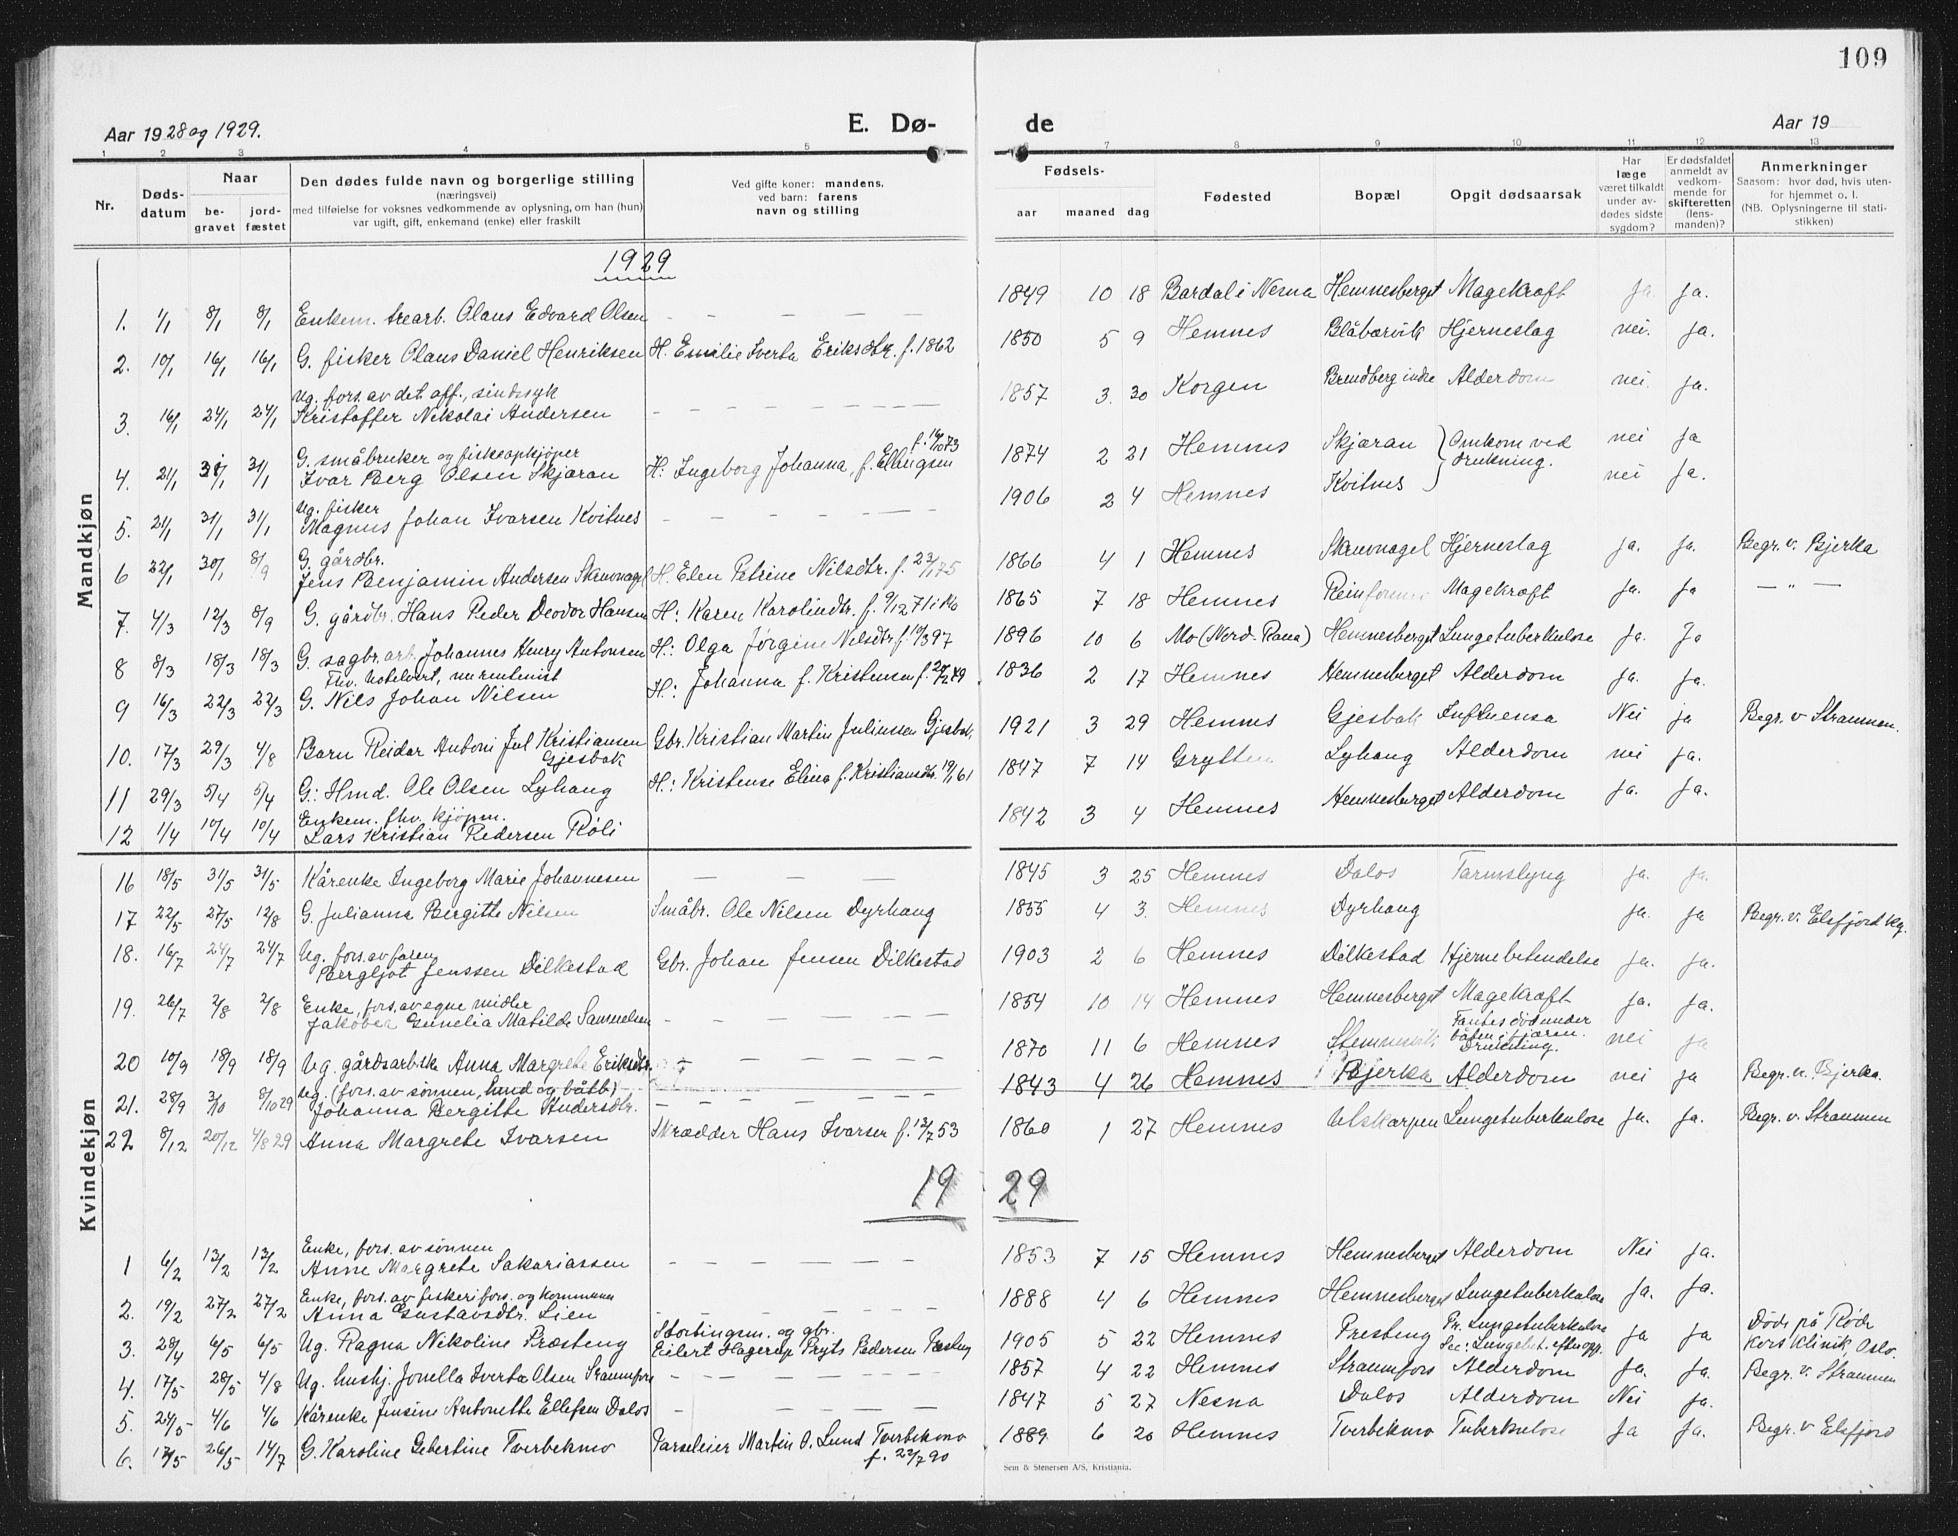 109
Aar 1928 og 1929.
E. Dø-
de
Aar 19
1 2 3 4 5 6 7 8 9 10 11 12 13
Nr.
Døds-
datum
Naar
be-
gravet
jord-
fæstet
Den dødes fulde navn og borgerlige stilling
(næringsvei)
med tilføielse for voksnes vedkommende av oplysning, om han (hun)
var ugift, gift, enkemand (enke) eller fraskilt
Ved gifte koner: mandens,
ved barn: farens
navn og stilling
Fødsels-
aar maaned dag
Fødested
Bopæl
Opgit dødsaarsak
Har
læge
været tilkaldt
under av-
dødes sidste
sygdom?
Er dødsfaldet
anmeldt av
vedkom-
mende for
skifteretten
(lens-
manden)?
Anmerkninger
Saasom: hvor død, hvis uten-
for hjemmet o. l.
(NB. Oplysningerne til stati-
stikken)
Mandkjøn
1929
1. 1/1 8/1 8/1 Enkem. trearb. Olaus Edvard Olsen – – – – – 1849 10 18 Bardal i Nesna Hemnesberget Magekræft ja. ja.
2. 10/1 16/1 16/1 G. fisker Olaus Daniel Henriksen H. Emilie Iverta Eriksdtr. f. 1862 1850 5 9 Hemnes Blåbærvik Hjerneslag nei. ja.
Ug. fors. av det off., sindssyk
3. 16/1 24/1 24/1 Kristoffer Nikolai Andersen – – – – – – – 1857 3. 20 Korgen Brendberg indre Alderdom nei ja.
G. småbruker og fiskeopkjøper
4. 21/1 31/1 31/1 Ivar Berg Olsen Skjæran H: Ingeborg Johanna, f. Ellingsen 1874 2 21 Hemnes Skjæran Omkom ved nei ja
drukning.
Ug. fisker
5. 21/1 31/1 31/1 Magnus Johan Ivarsen Kvitnes – – – – – – 1906 2 4 Hemnes Kvitnes nei ja.
G. gårdbr.
6 22/1 30/1 8/9 Jens Benjamin Andersen H. Elen Petrine Nilsdtr. 1866 4 1 Hemnes Hjerneslag ja. ja. Begr. v. Bjerka
7. 4/3 12/3 8/9 G. gårdbr. Hans Peder Deodor Hansen H: Karen Karolindtr. f. 9/12 71 i Mo 1865 7 18 Hemnes Magekræft ja ja – " –
8 8/3 18/3 18/3 G. sagbr.arb. Johannes Henry Antonsen H: Olga Jørgine Nilsdtr. f. 19/3 97 1896 10 6 Mo (Nord-Rana) Hemnesberget Lungetuberkulose ja. Ja
Fhv. hotelvert, nu rentenist
9 16/3 22/3 22/3 G. Nils Johan Nilsen H: Johanna f. Kristensen 1836 2 17 Hemnes Hemnesberget Alderdom ja. ja.
10. 17/3 29/3 4/8 Barn Reidar Antoni Jul Kristiansen Gbr. Kristian Martin Juliussen Gjesbak 1921 3 29 Hemnes Gjesbak Influensa Nei ja Begr. v Straumen.
Gjesbak
11 29/3 5/4 5/4 G: Hmd. Ole Olsen Lyhaug H: Kristense Elina f. Kristiansdtr. 19/1 61 1847 7 14 Grytten Lyhaug Alderdom nei ja.
Enkem. fhv. kjøpm.
12 1/4 10/4 10/4 Lars Kristian Pedersen Røli 1842 3 4 Hemnes Hemnesberget Alderdom ja. ja.
Kvindekjøn
16 18/5 31/5 31/5 Kårenke Ingeborg Marie Johannesen – – – 1845 3 25 Hemnes Dalos Tarmslyng ja. ja.
17 22/5 27/5 12/8 G. Julianna Bergitte Nilsen Småbr. Ole Nilsen Dyrhaug 1855 4 3. Hemnes Dyrhaug ja. ja Begr. v. Elsfjord kg.
Ug. fors. av faren
18. 16/7 24/7 24/7 Bergljot Jenssen Dilkestad Gbr. Johan Jensen Dilkestad 1903 2 6 Hemnes Dilkestad Hjernebetendelse ja. ja.
Enke, fors. av egne midler
19. 26/7 2/8 2/8 Jakobea Gunelia Matilde Samuelsen – – – – – – 1854 10 14 Hemnes Hemnesberget Magekræft ja. ja.
Fantes død under
båten i fjæren.
20 10/9 18/9 18/9 Ug. gårdsarbske Anna Margrete Eriksdtr. – – – – – 1870 11 6 Hemnes Drukning. nei ja
Ug. (fors. av sønnen, hmd og båtb)
21. 28/9 3/10 8/10 29 Johanna Bergitte Andersdtr. – – – – – – 1843 4 26 Hemnes Bjerka Alderdom nei ja Begr. v. Bjerka.
22 8/12 20/12 4/8 29 Anna Margrete Ivarsen Skrædder Hans Ivarsen f. 12/7 53 1860 1 27 Hemnes Utskarpen Lungetuberkulose ja. ja. Begr. v. Straumen
1929
Enke, fors. av sønnen
1 6/2 13/2 13/2 Anne Margrete Sakariassen – – – – – – 1853 7 15 Hemnes Hemnesberget Alderdom Nei ja.
Enke, fors. av fiskerifors. og kommunen
2. 19/2 27/2 27/2 Anna Gustavsdtr. Lien – – – – – – 1888 4 6 Hemnes Hemnesberget Lungetuberkulose ja. ja.
Stortingsm. og gbr.
3. 28/4 6/5 6/5 Ug. Ragna Nikoline Præsteng Eilert Hagerup Pryts Pedersen Præsteng 1905 5 22 Hemnes Presteng Pr. Lungetuberkulose ja ja Døde på Røde
Sec: Lungebet. efter opp. Kors Klinik, Oslo.
4. 17/5 28/5 4/8 Ug. hushj. Jonella Iverta Olsen Straumfors – – – – – – 1857 4 22 Hemnes Straumfors Alderdom ja. ja. Begr. v. Straumen
5. 24/5 4/6 4/6 Kårenke Jensine Antonette Ellefsen Dalos – – – – – – 1847 5 27 Nesna Dalos Alderdom Nei ja.
6. 17/5 26/5 14/7 G. Karoline Gebertine Tverbekmo Parseleier Martin O. Lund Tverbekmo 1889 6 20 Hemnes Tverbekmo Tuberkulose ja ja. Begr. v Elsfjord
f. 22/7 90
Sem & Stenersen A/S, Kristiania.